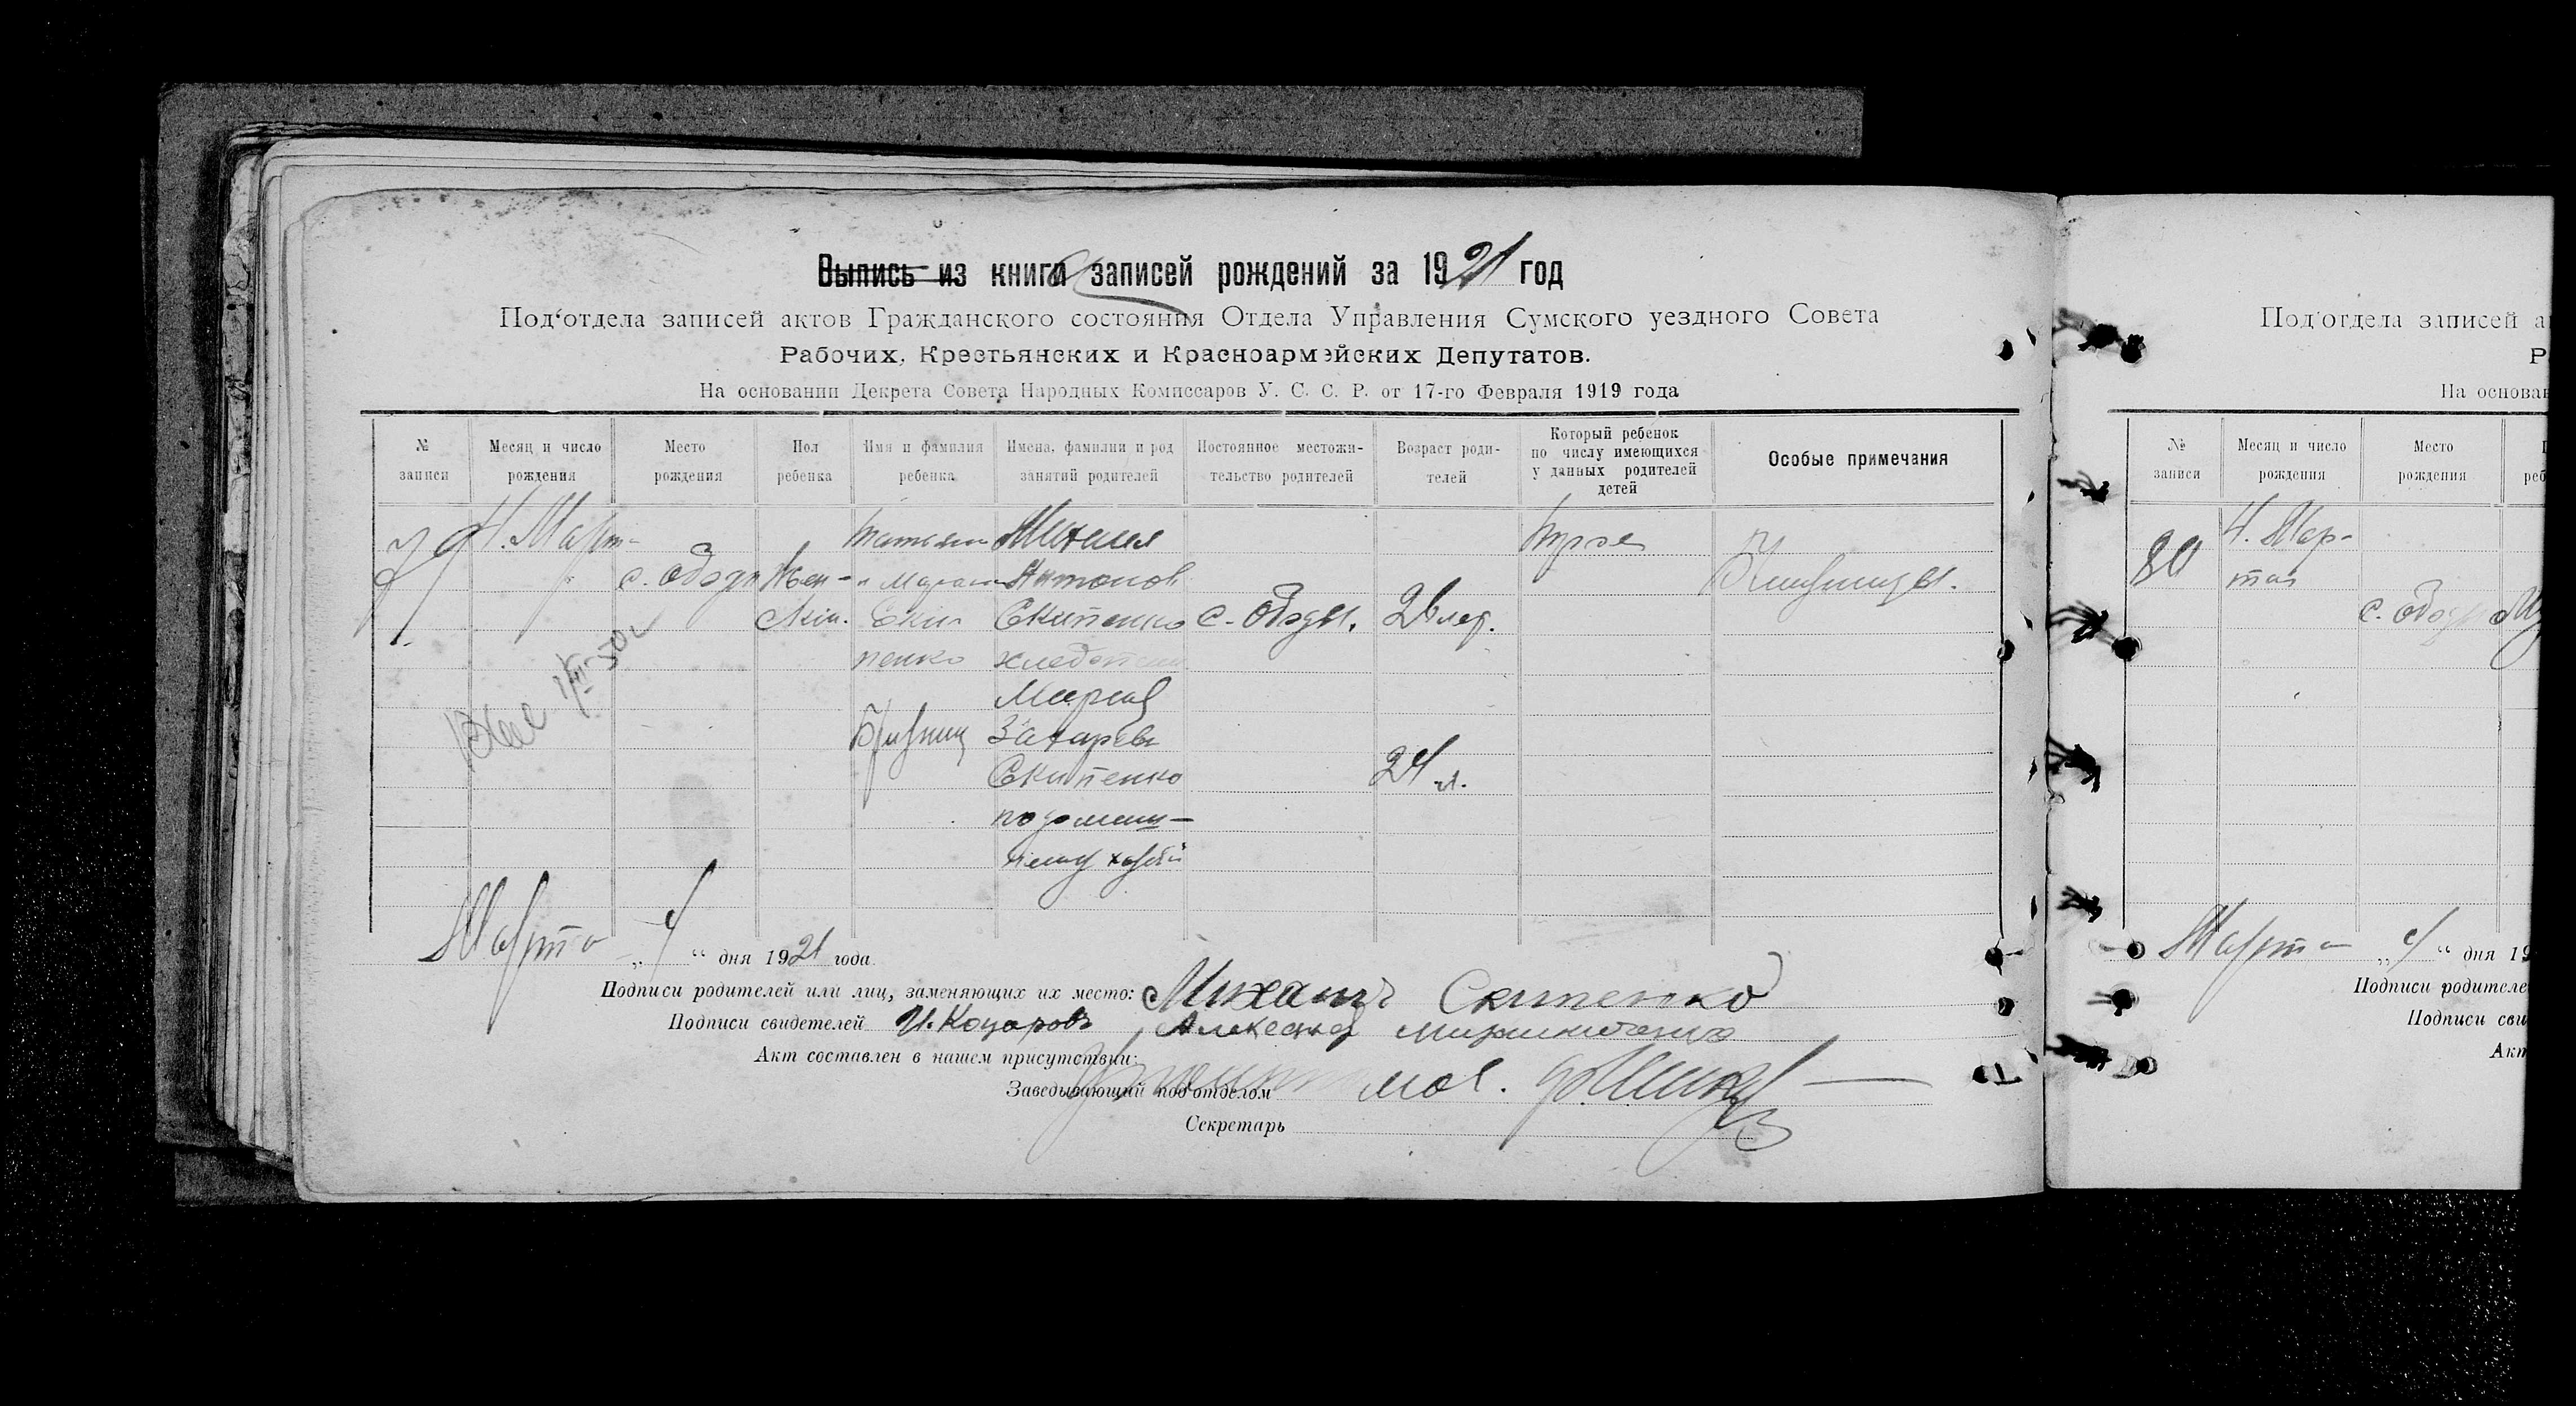 Выпись из книга записей рождений за 1921 год
Под‘отдела записей актов Гражданского состояния Отдела Управления Сумского уездного Совета
Рабочих, Крестьянских и Красноармейских Депутатов.
На основании Декрета Совета Народных Комиссаров У. С. С. Р. от 17-го Февраля 1919 года
№ записи
Месяц и число рождения
Место рождения
Пол ребенка
Имя и фамилия ребенка
Имена, фамилии и род занятий родителей
Постоянное местожительство родителей
Возраст родителей
Который ребенок по числу имеющихся у данных родителей детей
Особые примечания
79
4. Март
с. Ободы
Жен-
Татьяна
и Мария
Ски
пенко
Михаил
Антонов
Скипенко
хлебопаш
Мария
Захарева
Скипенко
по домаш-
нему хозяй
с. Ободы.
26 лет.
24 л.
Близнецы.
Марта „4“ дня 1921 года
Подписи родителей или лиц, заменяющих их место: Михаил Скипенко
Подписи свидетелей И. Коцаровъ, Александр
Акт составлен в нашем присутствии:
Заведывающий под‘отделом
Секретарь
Под‘отдела записей а
Р
На основан
№ записи
Месяц и число рождения
Место рождения
реб
80
4. Мар-
та
с. Ободы
Му
Марта „4“ дня 19
Подписи родителе
Подписи сви
Акт